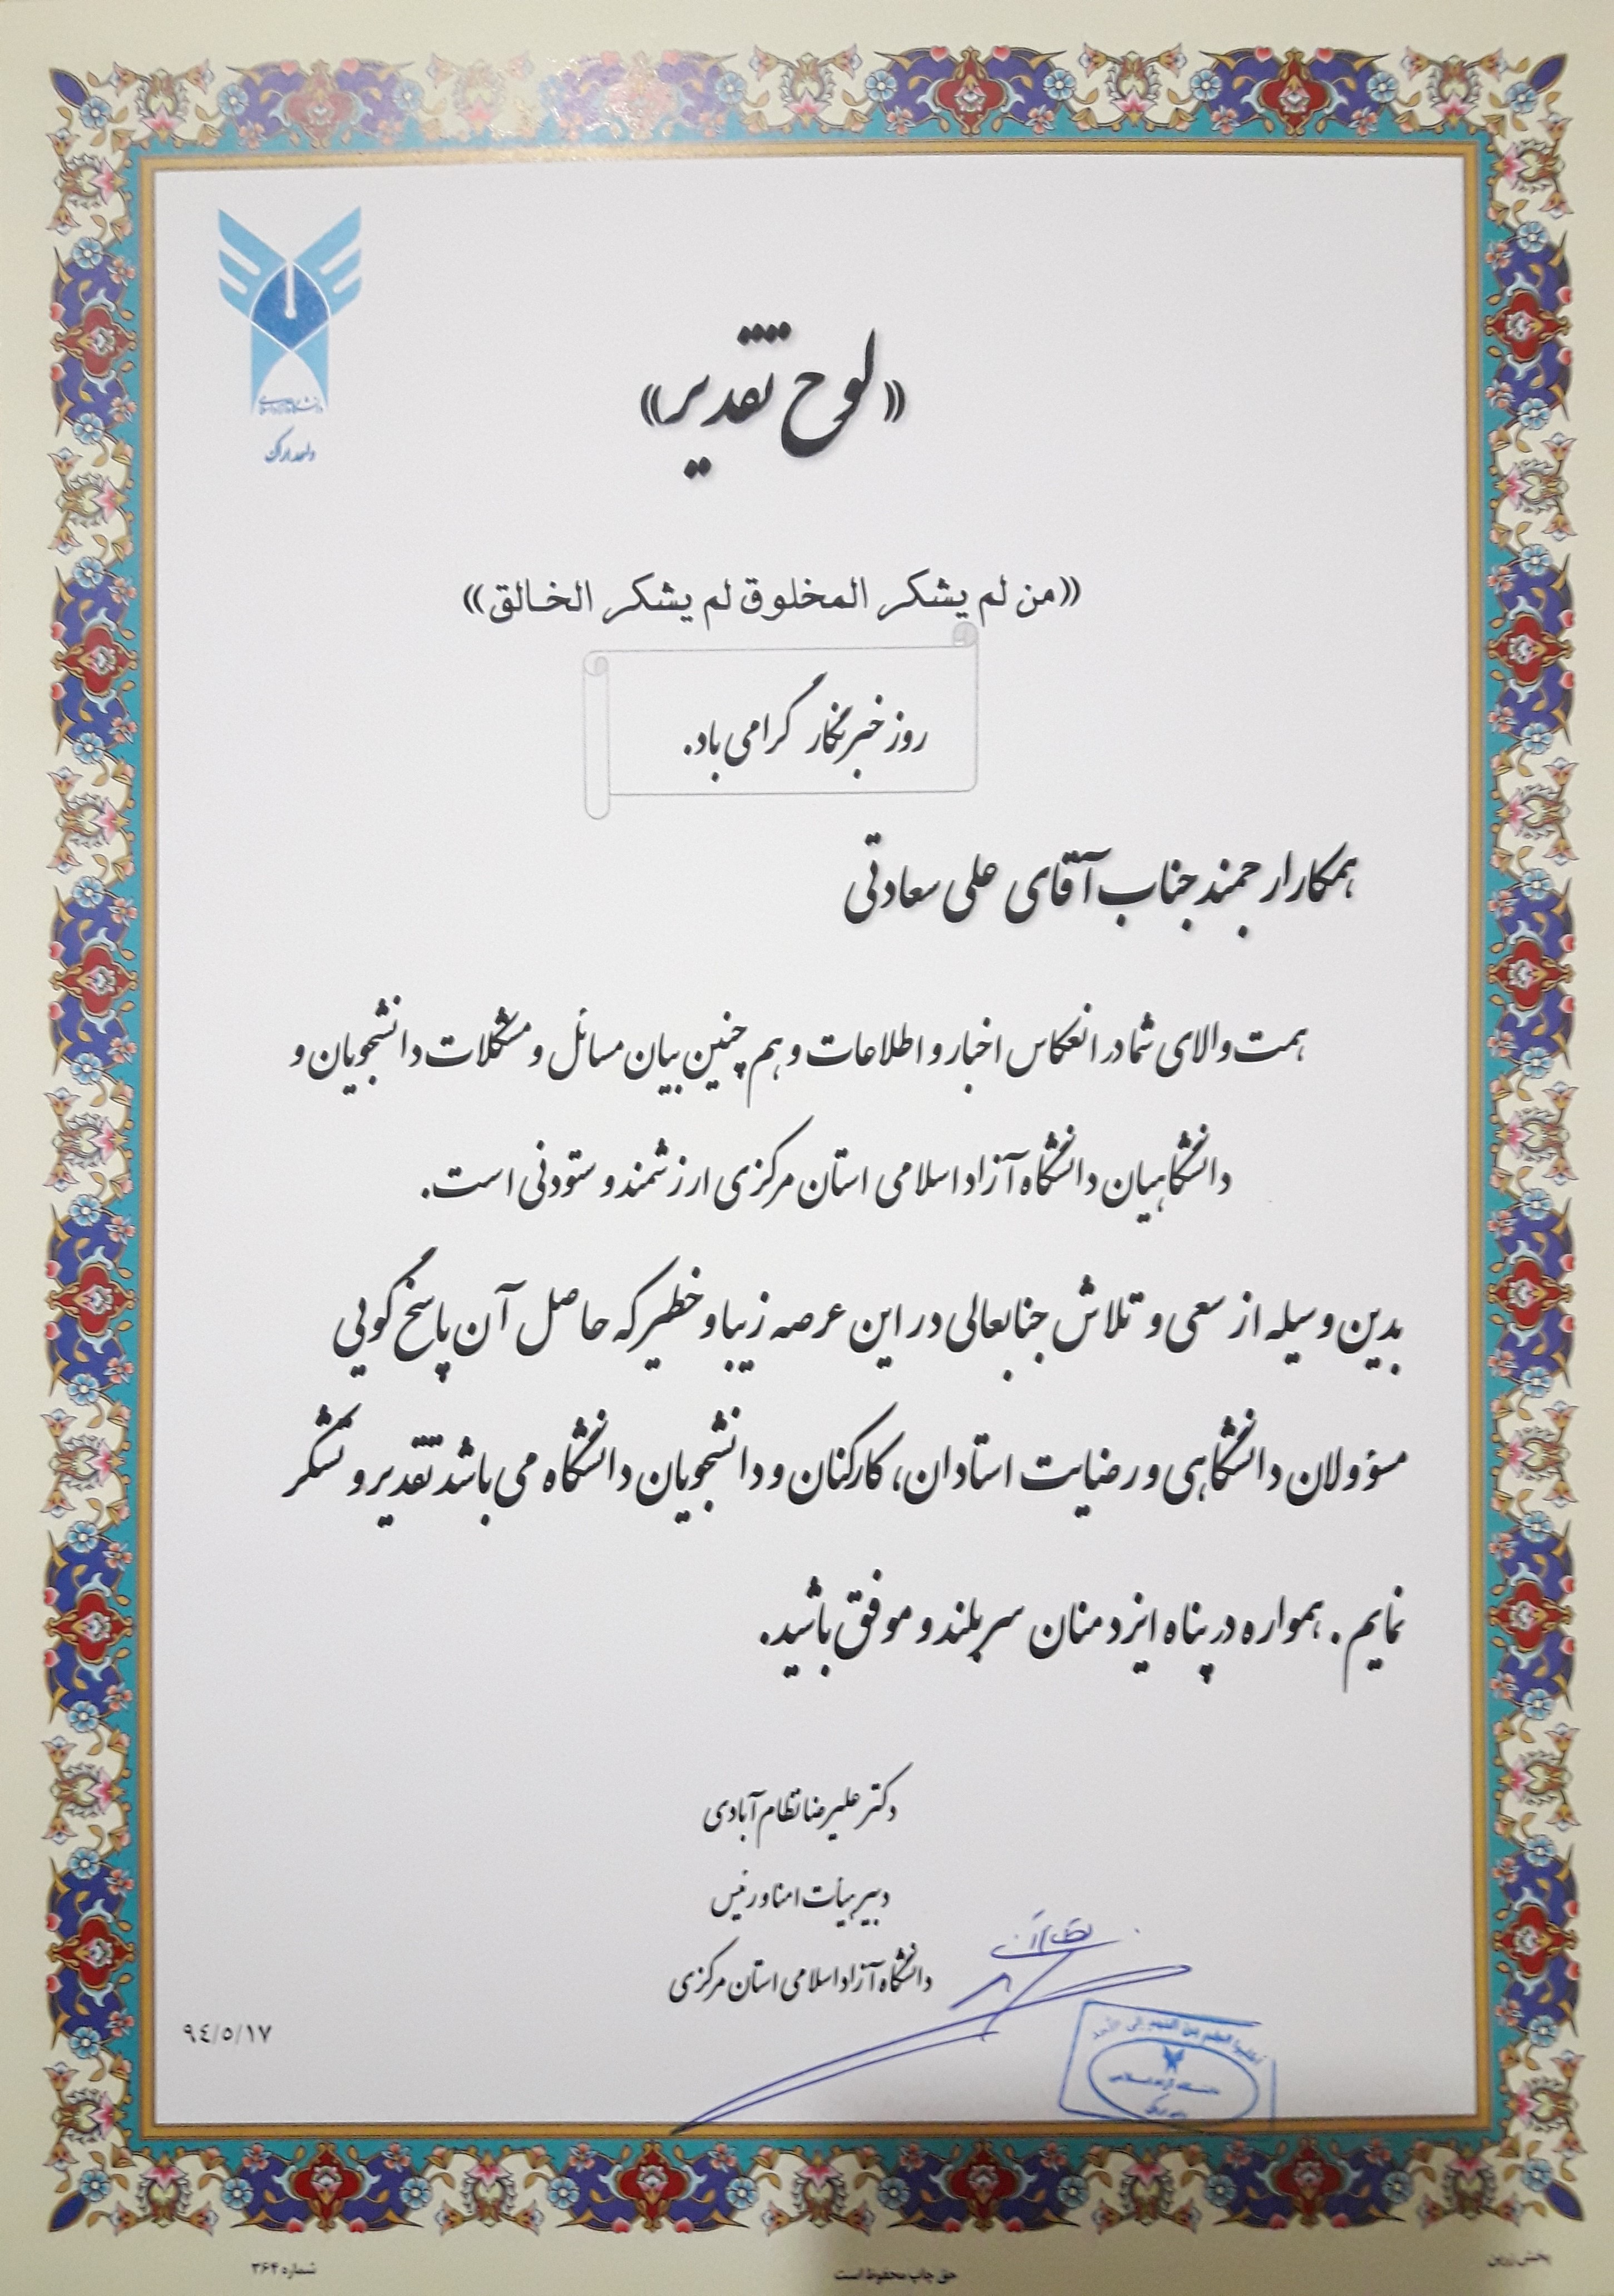 دانشگاه آزاد اسلامی
واحد اراک
«لوح تقدیر»
«من لم يشكر المخلوق لم يشكر الخالق»
روز خبرنگار گرامی باد.
همکار ارجمند جناب آقای علی سعادتی
همت والای شما در انعکاس اخبار و اطلاعات و هم چنین بیان مسائل و مشکلات دانشجویان و
دانشگاهیان دانشگاه آزاد اسلامی استان مرکزی ارزشمند و ستودنی است.
بدین وسیله از سعی و تلاش جنابعالی در این عرصه زیبا و خطیر که حاصل آن پاسخ گویی
مسؤولان دانشگاهی و رضایت استادان، کارکنان و دانشجویان دانشگاه می باشد تقدیر و تشکر
نمایم . همواره در پناه ایزد منان سربلند و موفق باشید.
دکتر علیرضا نظام آبادی
دبیر هیأت امنا و رئیس
دانشگاه آزاد اسلامی استان مرکزی
٩٤/٥/١٧
اطلبوا العلم من المهد الی اللحد
دانشگاه آزاد اسلامی
واحد اراک
پخش زرین
حق چاپ محفوظ است
شماره ۳۶۴